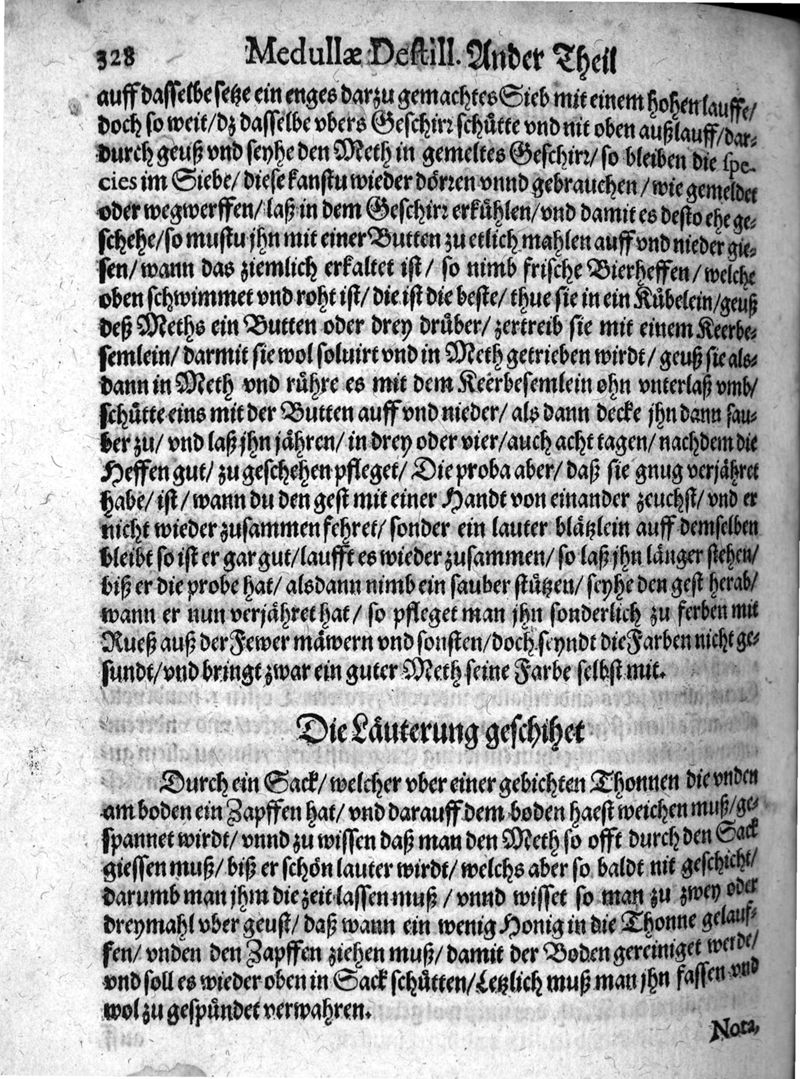 328 Medullæ Destill. Ander Theil
auff dasselbe setze ein enges darzu gemachtes Sieb mit einem hohen lauffe/
doch so weit/ dz dasselbe vbers Geschirr schütte vnd nit oben außlauff/ dar-
durch geuß vnd seyhe den Meth in gemeltes Geschirr/ so bleiben die spe-
cies im Siebe/ diese kanstu wieder dörren vnnd gebrauchen/ wie gemeldet
oder wegwerffen/ laß in dem Geschirr erkühlen/ vnd damit es desto ehe ge-
schehe/ so mustu jhn mit einer Butten zu etlich mahlen auff vnd nieder gie-
sen/ wann das ziemlich erkaltet ist/ so nimb frische Bierheffen/ welche
oben schwimmet vnd roht ist/ die ist die beste/ thue sie in ein Kübelein/ geuß
deß Meths ein Butten oder drey drüber/ zertreib sie mit einem Keerbe-
semlein/ darmit sie wol soluirt vnd in Meth getrieben wirdt/ geuß sie als-
dann in Meth vnd rühre es mit dem Keerbesemlein ohn vnterlaß vmb/
schütte eins mit der Butten auff vnd nieder/ als dann decke jhn dann sau-
ber zu/ vnd laß jhn jähren/ in drey oder vier/ auch acht tagen/ nachdem die
Heffen gut/ zu geschehen pfleget/ Die proba aber/ daß sie gnug verjähret
habe/ ist/ wann du den gest mit einer Handt von einander zeuchst/ vnd er
nicht wieder zusammen fehret/ sonder ein lauter blätzlein auff demselben
bleibt so ist er gar gut/ laufft es wieder zusammen/ so laß jhn länger stehen/
biß er die probe hat/ alsdann nimb ein sauber stützen/ seyhe den gest herab/
wann er nun verjähret hat/ so pfleget man jhn sonderlich zu ferben mit
Rueß auß der Fewer mäwern vnd sonsten/ doch seyndt die Farben nicht ge-
sundt/ vnd bringt zwar ein guter Meth seine Farbe selbst mit.
Die Läuterung geschihet
Durch ein Sack/ welcher vber einer gebichten Thonnen die vnden
am boden ein Zapffen hat/ vnd darauff dem boden haest weichen muß/ ge-
spannet wirdt/ vnnd zu wissen daß man den Meth so offt durch den Sack
giessen muß/ biß er schön lauter wirdt/ welchs aber so baldt nit geschicht/
darumb man jhm die zeit lassen muß/ vnnd wisset so man zu zwey oder
dreymahl vber geust/ daß wann ein wenig Honig in die Thonne gelauf-
fen/ vnden den Zapffen ziehen muß/ damit der Boden gereiniget werde/
vnd soll es wieder oben in Sack schütten/ Letzlich muß man jhn fassen vnd
wol zu gespündet verwahren.
Nota,